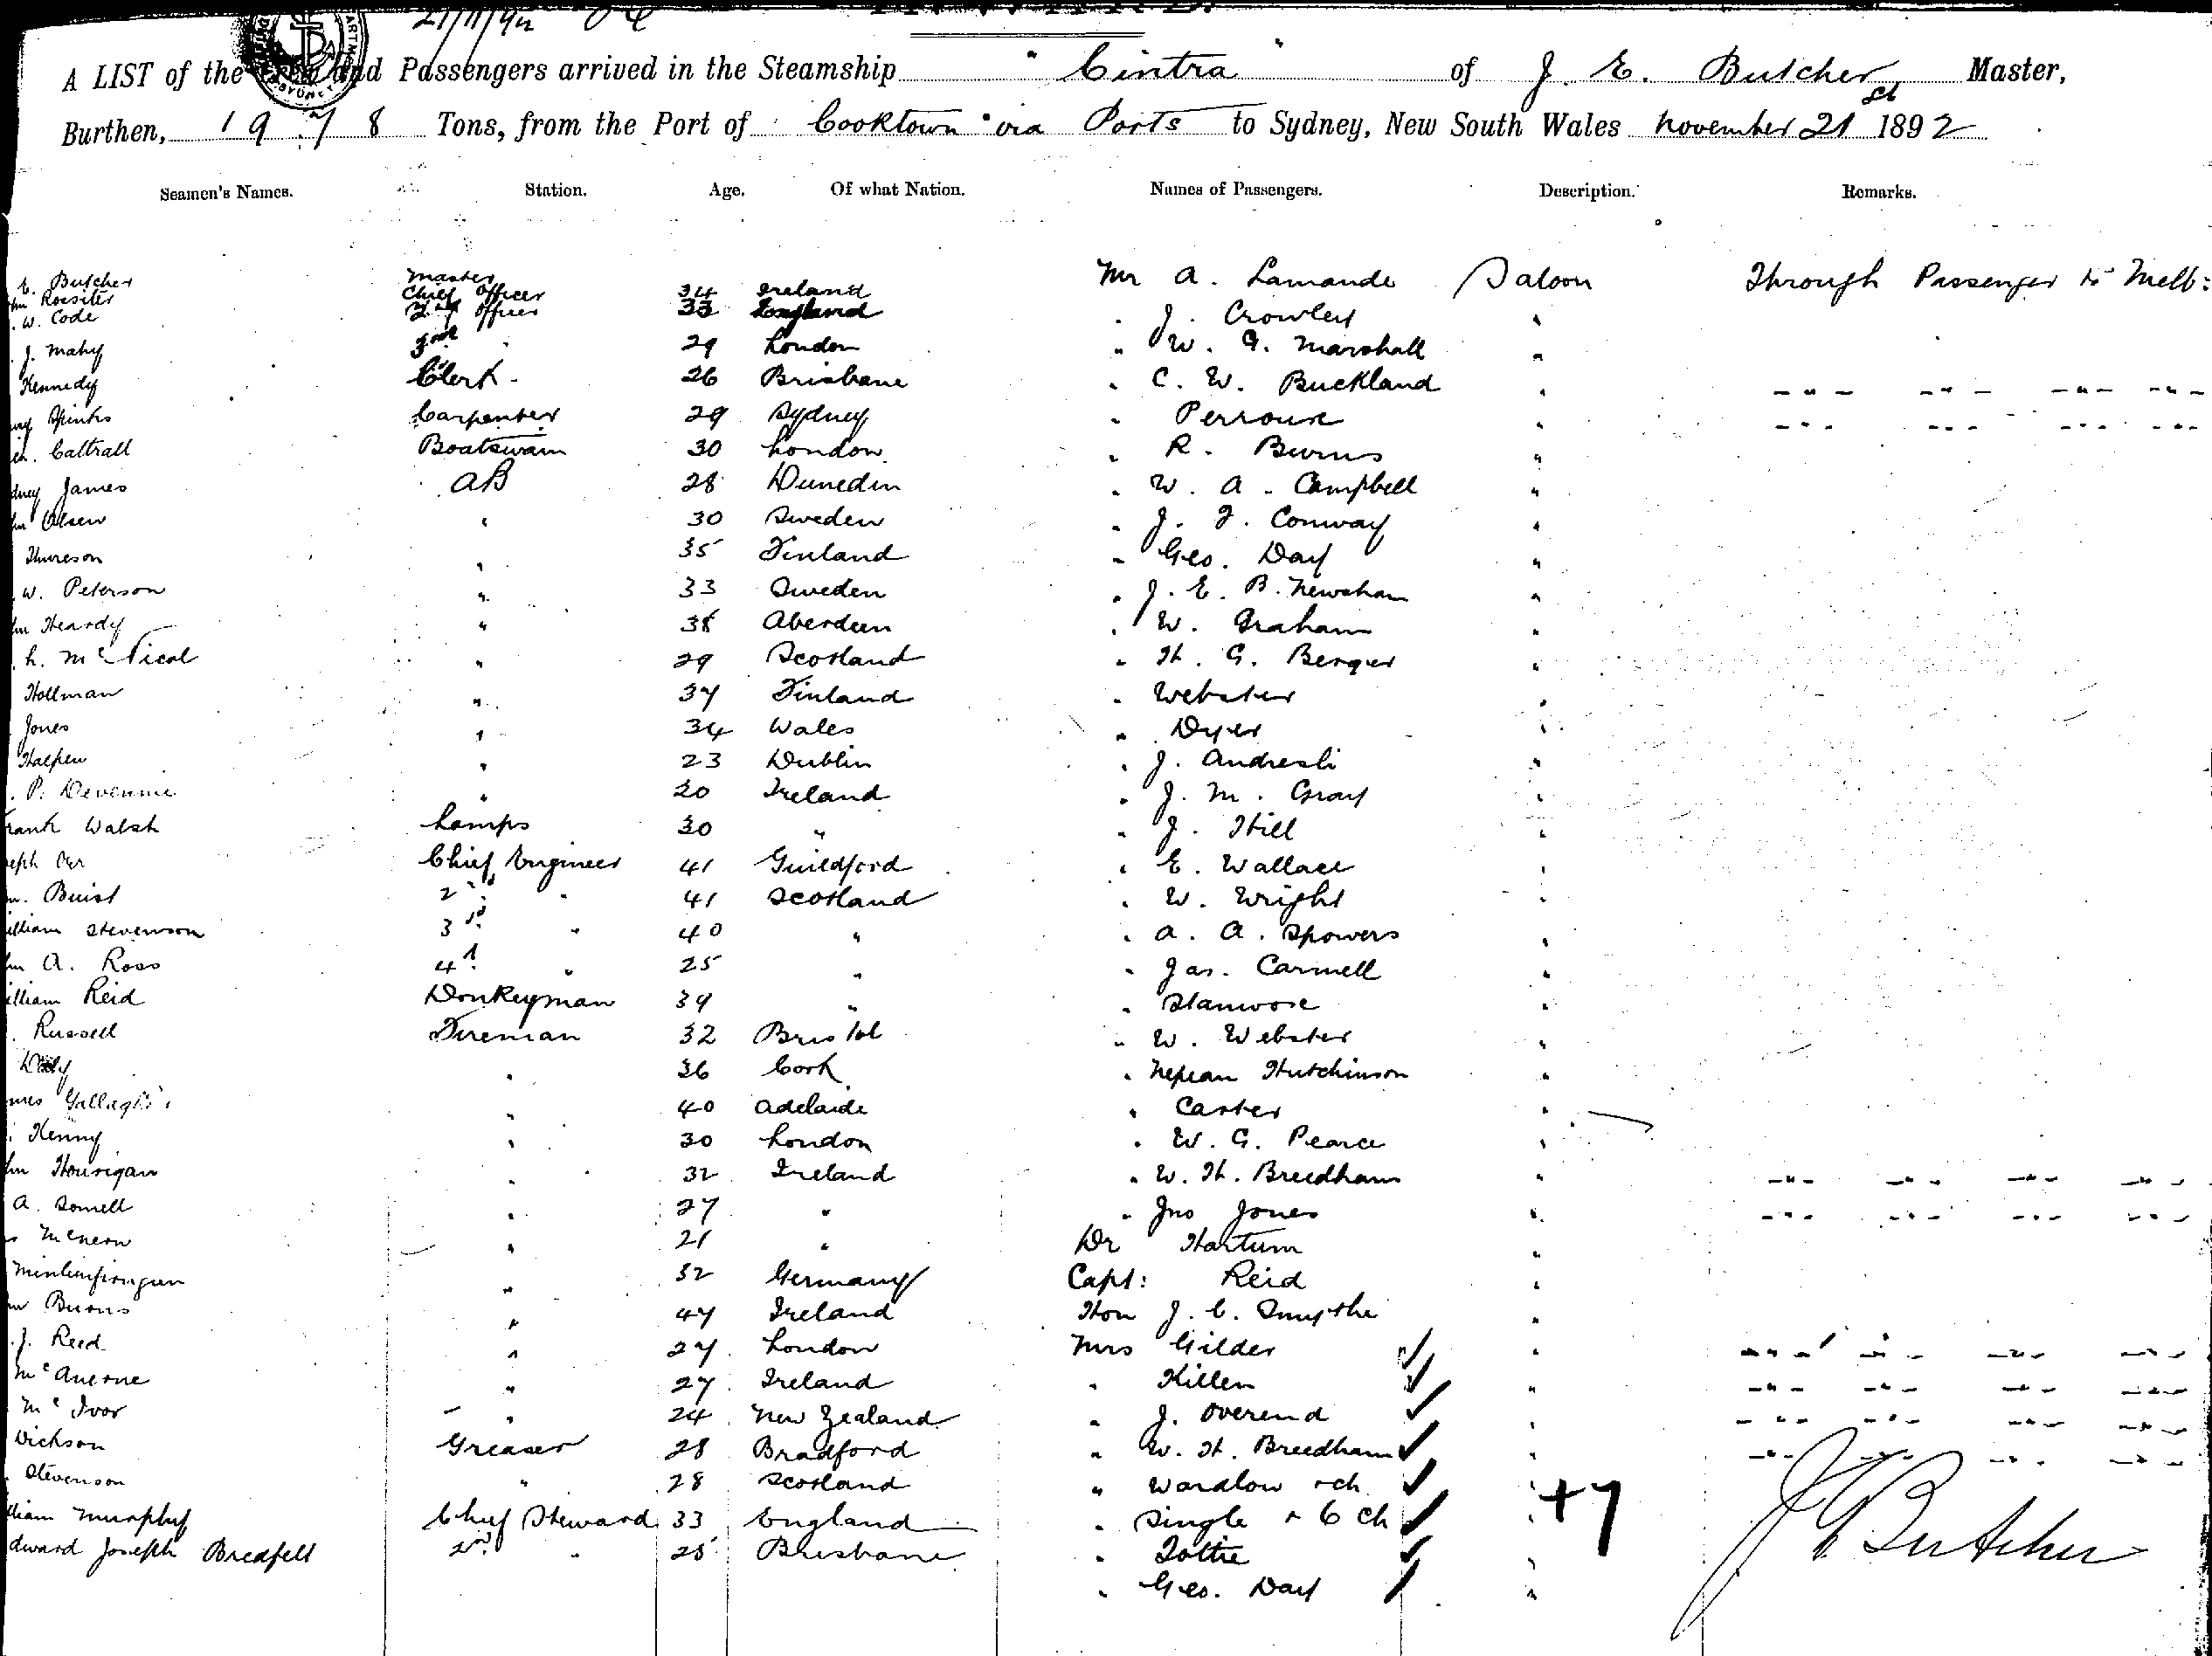 21/11/92
A LIST of the Crew and Passengers arrived in the Steamship "Cintra" of J. E. Butcher, Master,
Burthen, 1978 Tons, from the Port of Cooktown via Ports to Sydney, New South Wales November 21st 1892
Seamen's Names. Station. Age. Of what Nation. Names of Passengers. Description. Remarks.
E. Butcher Master Mr A. Lamande Saloon Through Passenger to Melb:
Rossiter Chief Officer 34 Ireland
W. Code 2nd Officer 33 England " J. Crowley "
J. Mahy 3rd " 29 London " W. G. Marshall "
Kennedy Clerk 26 Brisbane " C. W. Buckland " " " " "
Spinks Carpenter 29 Sydney " Perroux " " " " "
Cattrall Boatswain 30 London " R. Burns "
dney James AB 28 Dunedin " W. A. Campbell "
Olsen " 30 Sweden " J. F. Conway "
Thureson " 35 Finland " Geo. Day "
W. Peterson " 33 Sweden " J. E. B. Newsham "
Heardy " 38 Aberdeen " W. Graham "
h. McNicol " 29 Scotland " H. G. Berger "
Hollman " 37 Finland " Webster "
Jones " 34 Wales " Dyer "
Halpen " 23 Dublin " J. Andresli "
P. Devennie " 20 Ireland " J. M. Gray "
rank Walsh Lamps 30 " " J. Hill "
eph Orr Chief Engineer 41 Guildford " E. Wallace "
Buist 2nd " 41 Scotland " W. Wright "
illiam Stevenson 3rd " 40 " " A. A. Spowers "
A. Ross 4th " 25 " " Jas. Carmell "
illiam Reid Donkeyman 39 " " Stanwore "
Russell Fireman 32 Bristol " W. Webster "
Daly " 36 Cork " Nepean Hutchinson "
mes Gallagher " 40 Adelaide " Carter "
Kenny " 30 London " W. G. Pearce "
Hourigan " 32 Ireland " W. H. Breedham " " " " "
A. Somell " 27 " " Jno Jones " " " " "
McNern " 21 " Dr Hartum "
" 32 Germany Capt: Reid "
Burns " 47 Ireland Hon J. C. Smythe "
J. Reed " 27 London Mrs Gilder ✓ " " " " "
McAnerne " 27 Ireland " Killen ✓ " " " " "
McIvor " 24 New Zealand " J. Overend ✓ " " " " "
Dickson Greaser 28 Bradford " W. H. Breedham ✓ " " " " "
Stevenson " 28 Scotland " Wardlow & ch ✓ "
lliam Murphy Chief Steward 33 England " Single & 6 ch ✓ " +7
dward Joseph Bredfell 2nd " 25 Brisbane " Tottie ✓ " J E Butcher
" Geo. Day ✓ "